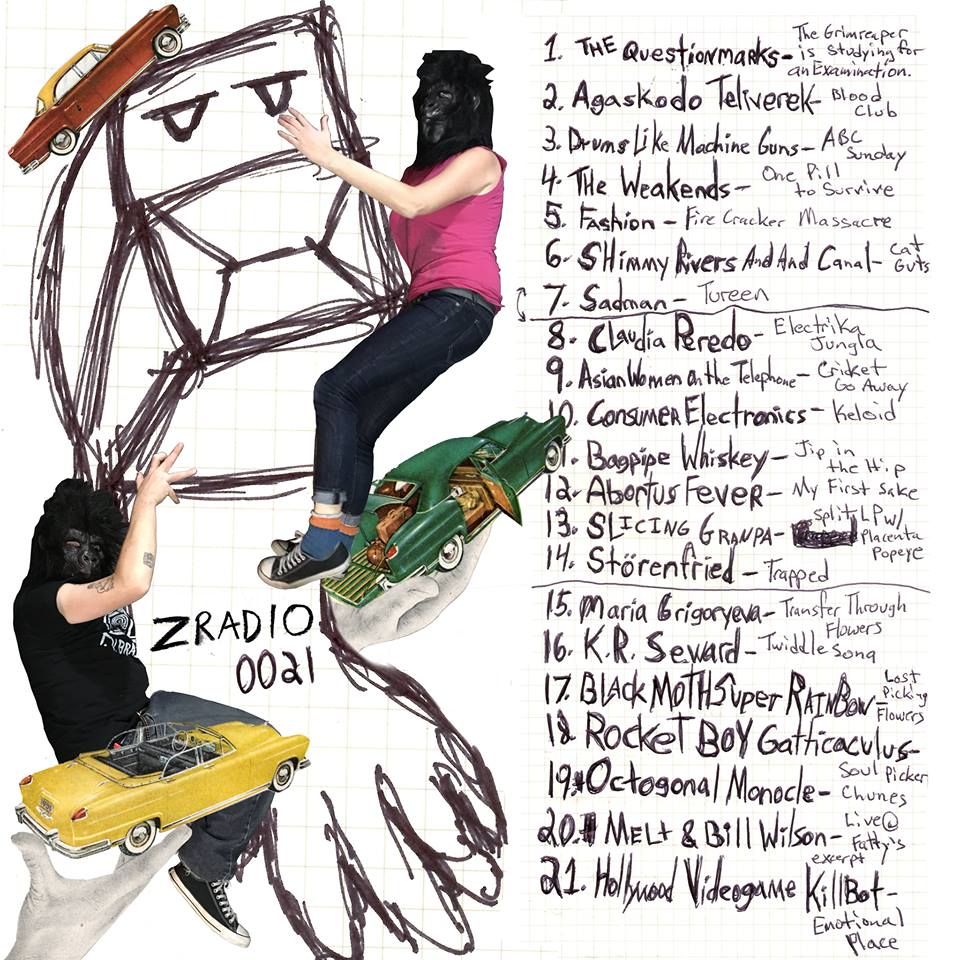 1. THE Questionmarks- The Grimreaper
is studying for
an Examination.
2. Agaskodo Teliverek- Blood
Club
3. Drums Like Machine Guns- ABC
Sunday
4. The Weakends- One Pill
to Survive
5. Fashion - Fire Cracker Massacre
6. SHimmy Rivers And And Canal- Cat
Guts
7. Sadman - Tureen
8. Claudia Peredo- Electrika
Jungla
9. Asian Women On the Telephone- Cricket
Go Away
10. Consumer Electronics- Keloid
11. Bagpipe Whiskey- Jip in
the Hip
12. Abortus Fever- My First Sake
13. SLICING GRANPA- Split LP w/
Placenta
Popeye
14. Störenfried - Trapped
15. Maria Grigoryeva- Transfer Through
Flowers
16. K.R. Seward- Twiddle Song
17. BLACK MOTH Super RAINBow- Lost
Picking
Flowers
18. ROCKET BOY Gatticaculus-
Soul Picker
19. Octogonal Monocle- Chunes
20. MELT & Bill Wilson- Live@
Fatty's
excerpt
21. Hollywood Videogame KillBot-
Emotional
Place
ZRADIO
0021